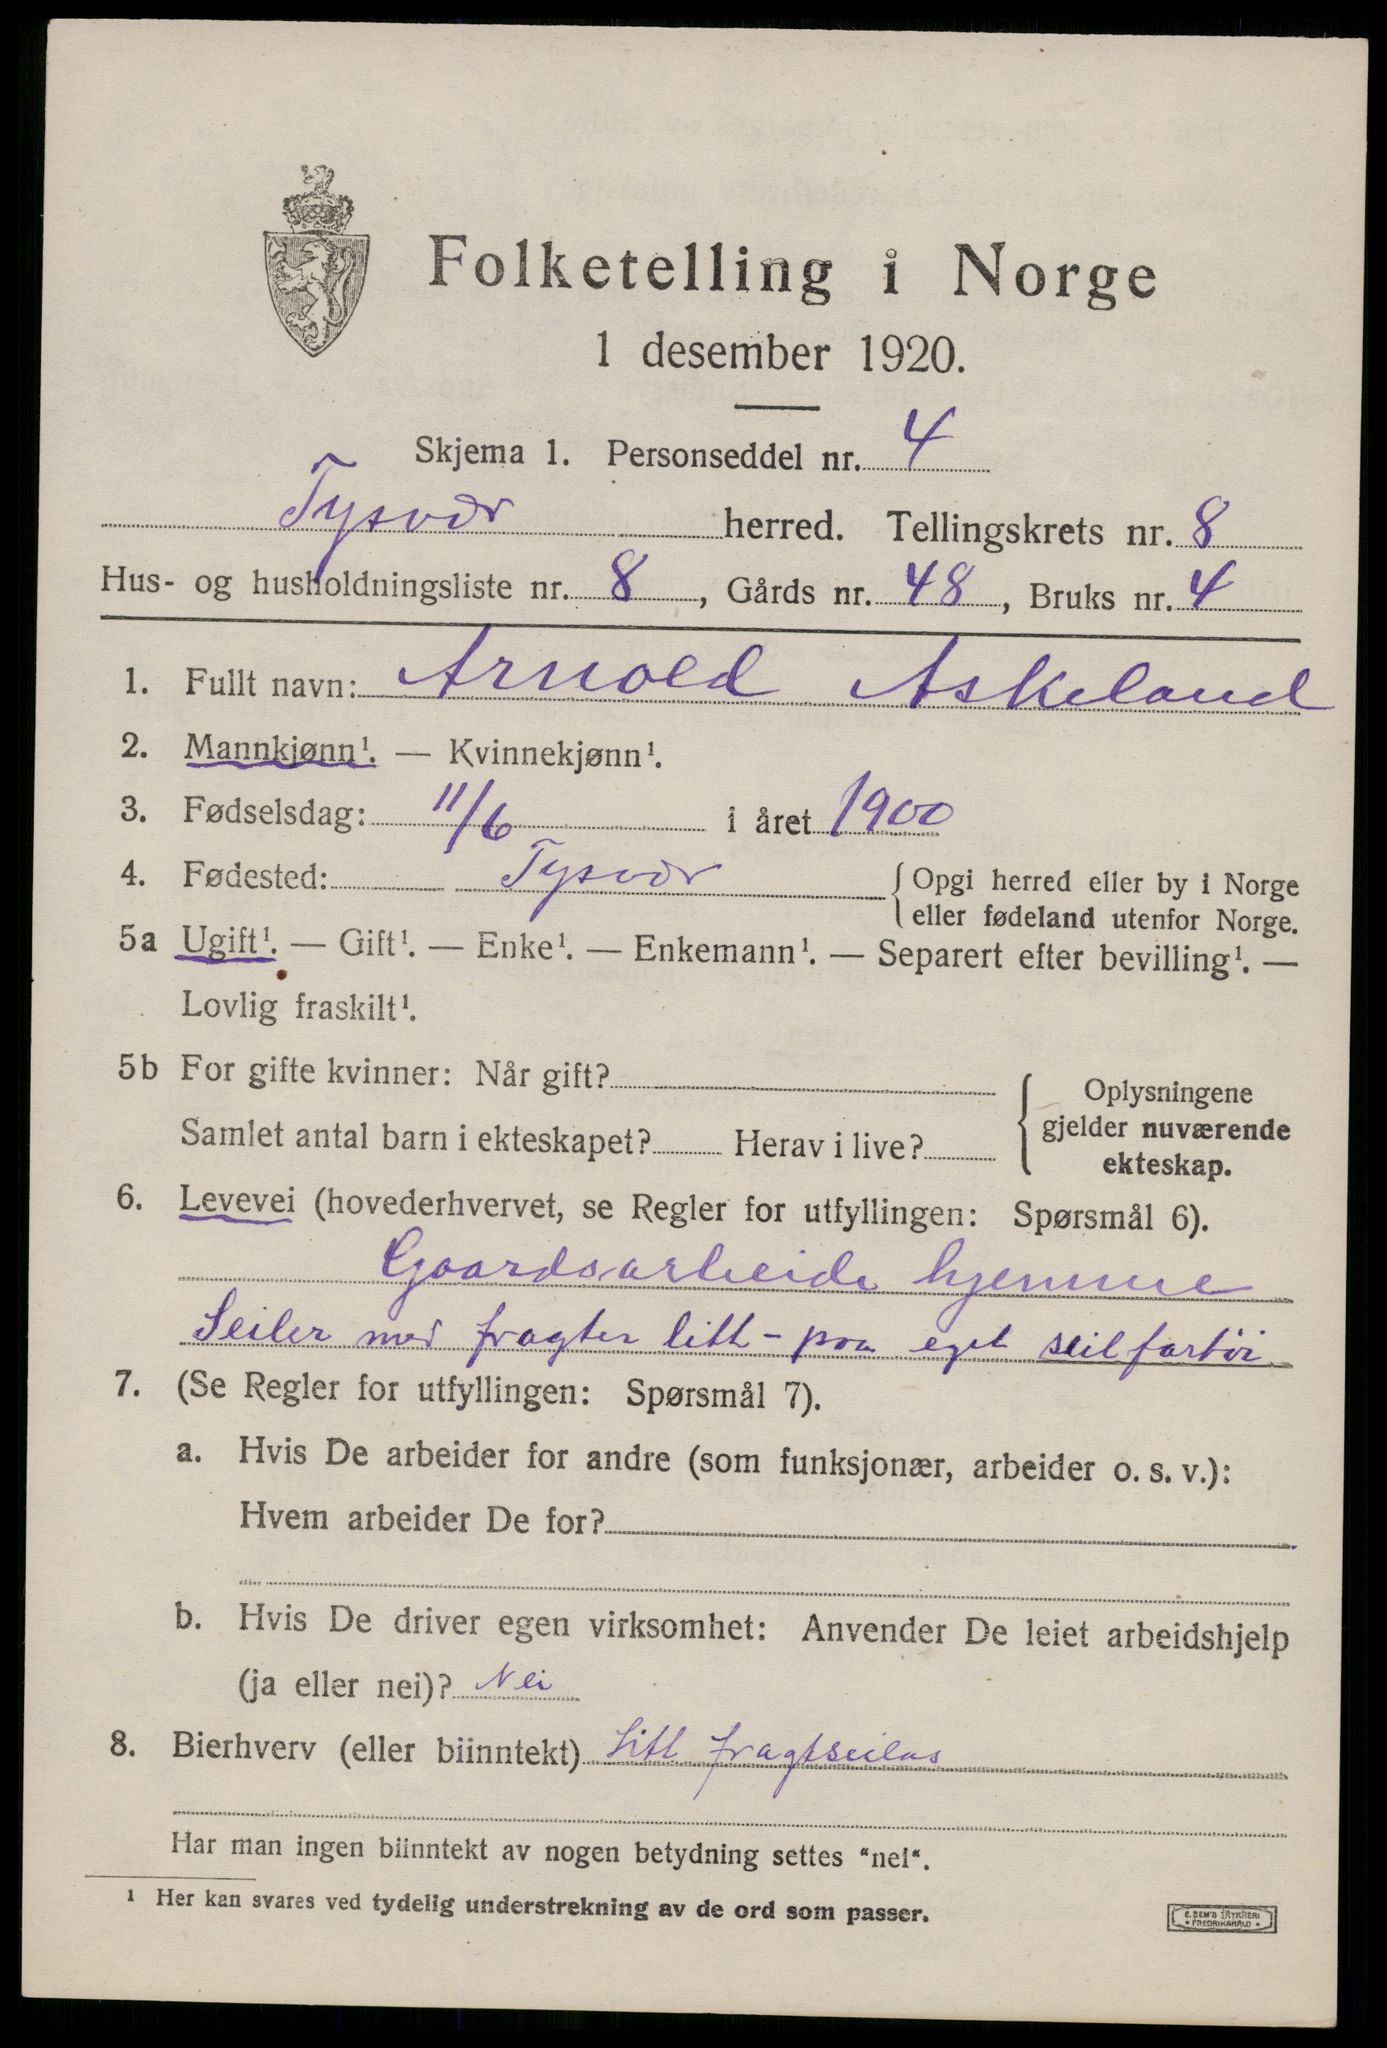 Folketelling i Norge
1 desember 1920.
Skjema 1. Personseddel nr. 4
Tysvær herred. Tellingskrets nr. 8
Hus- og husholdningsliste nr. 8, Gårds nr. 48, Bruks nr. 4
1. Fullt navn: Arnold Askeland
2. Mannkjønn¹. — Kvinnekjønn¹.
3. Fødselsdag: 11/6 i året 1900
4. Fødested: Tysvær { Opgi herred eller by i Norge
eller fødeland utenfor Norge.
5a Ugift¹. — Gift¹. — Enke¹. — Enkemann¹. — Separert efter bevilling¹. —
Lovlig fraskilt¹.
5b For gifte kvinner: Når gift?
Samlet antal barn i ekteskapet? Herav i live?
{ Oplysningene
gjelder nuværende
ekteskap.
6. Levevei (hovederhvervet, se Regler for utfyllingen: Spørsmål 6).
Gaardsarbeide hjemme
Seiler med fragter litt - paa eget seilfartöi
7. (Se Regler for utfyllingen: Spørsmål 7).
a. Hvis De arbeider for andre (som funksjonær, arbeider o. s. v.):
Hvem arbeider De for?
b. Hvis De driver egen virksomhet: Anvender De leiet arbeidshjelp
(ja eller nei)? Nei
8. Bierhverv (eller biinntekt) Litt fragtseilas
Har man ingen biinntekt av nogen betydning settes "nei".
¹ Her kan svares ved tydelig understrekning av de ord som passer.
E. SEM'S TRYKKERI
• FREDRIKSHALD •